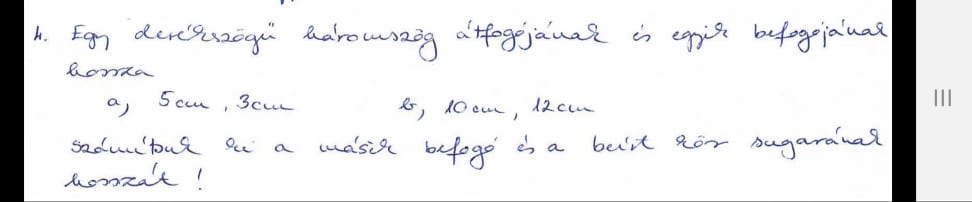 4. Egy derékszögű háromszög átfogójának és egyik befogójának
hossza
a, 5cm, 3cm b, 10cm, 12cm
számítsuk ki a másik befogó és a beírt kör sugarának
hosszát!